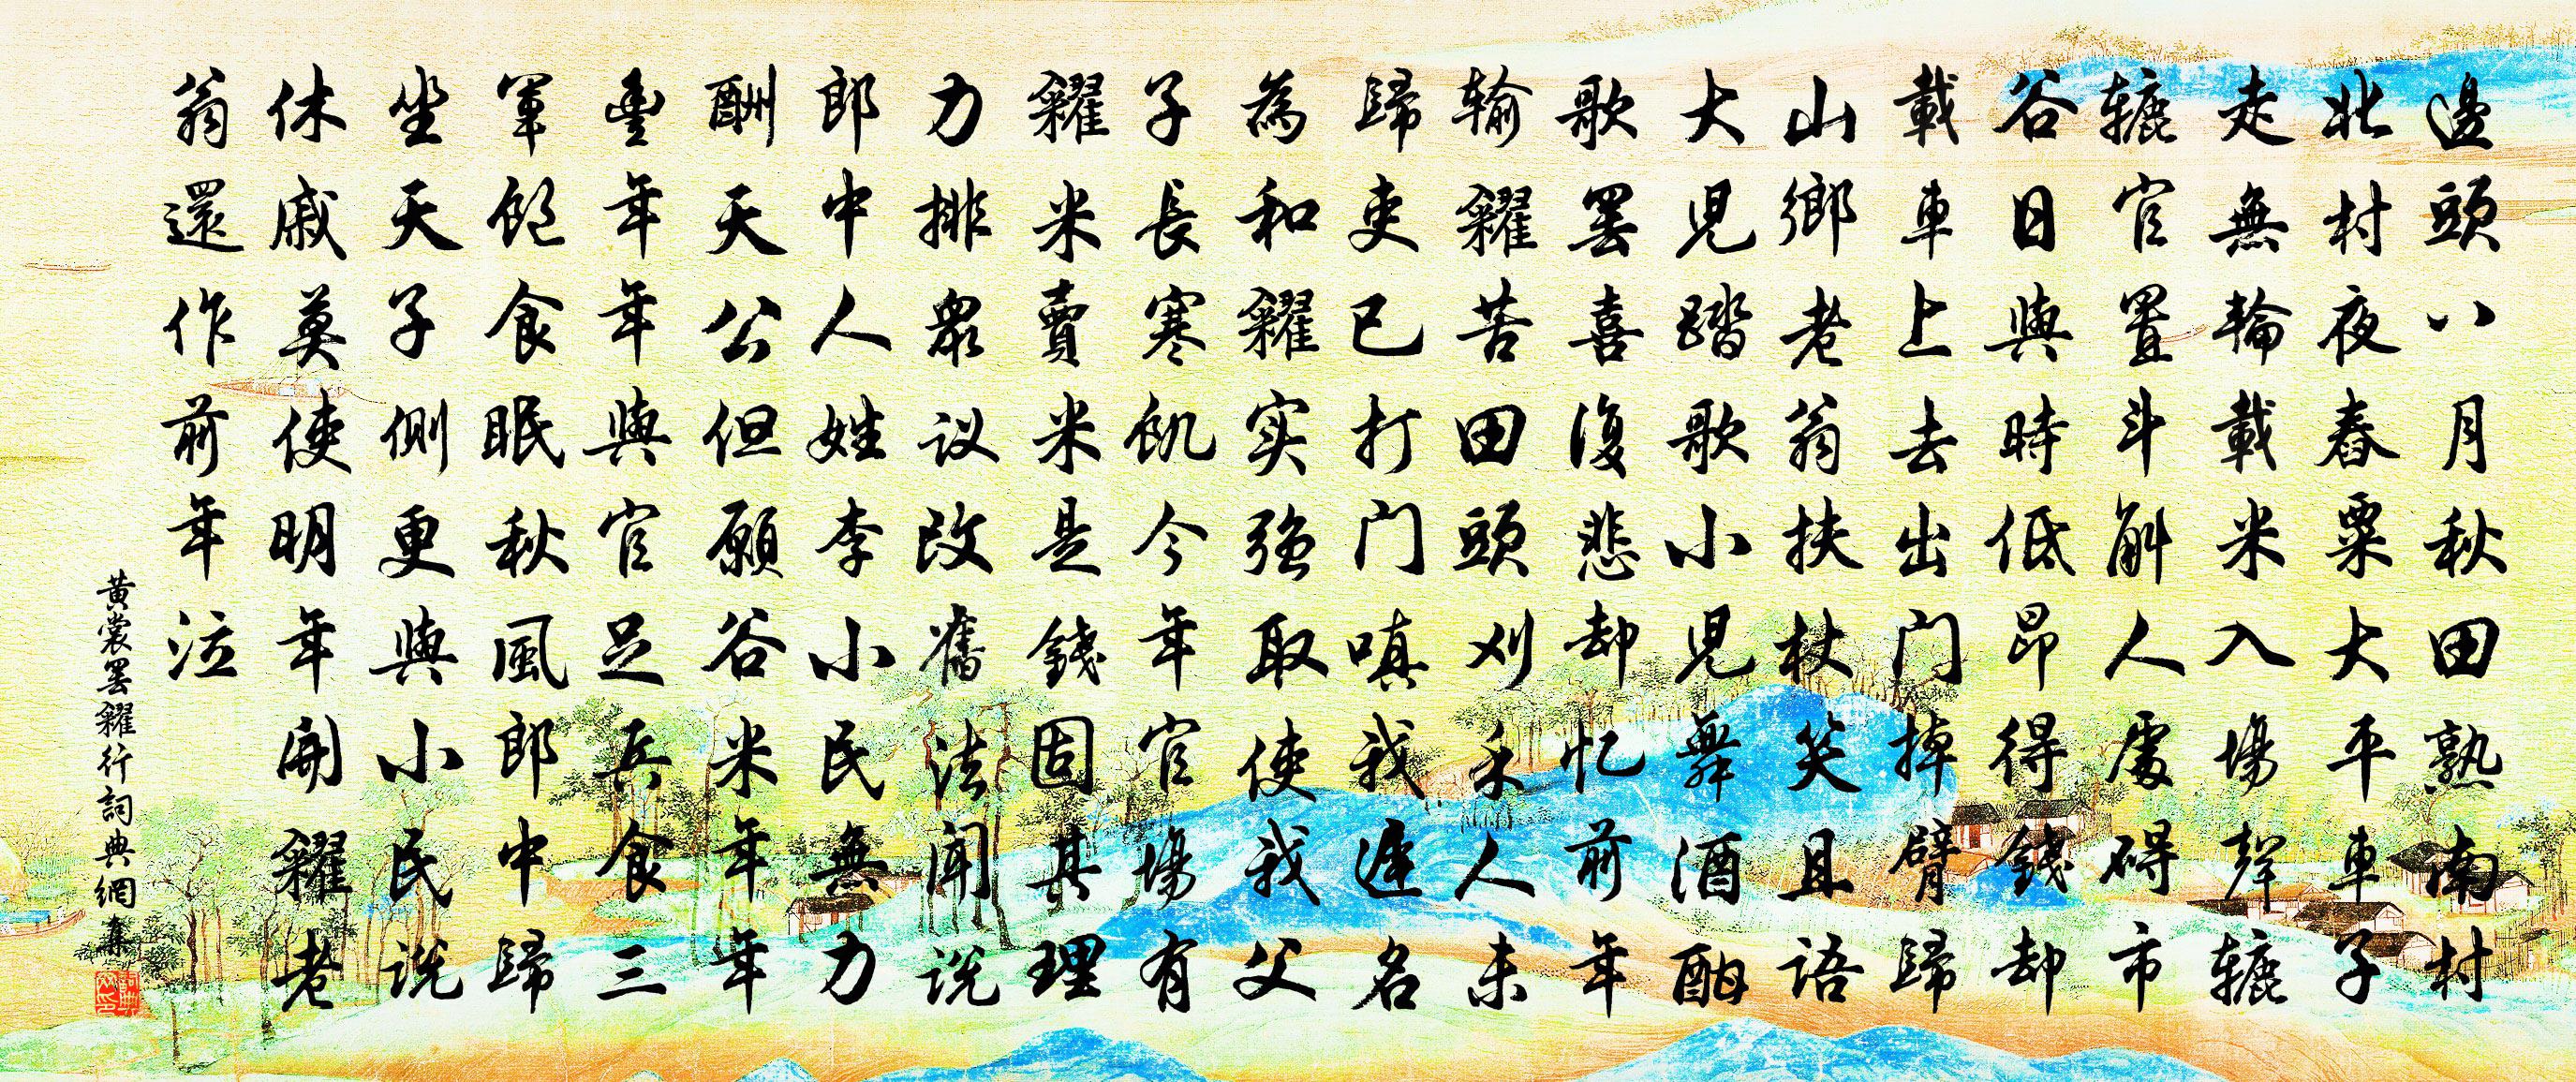 邊頭八月秋田熟南村
北村夜舂粟大平車子
走無輪載米入場聲轆
轆官置斗斛人處碍市
谷日與時低昂得錢却
載車上去出门掉臂歸
山鄉老翁扶杖笑且語
大兒踏歌小兒舞酒酣
歌罢喜復悲却忆前年
输糴苦田頭刈禾人未
歸吏已打门嗔我遲名
為和糴实強取使我父
子長寒飢今年官場有
糴米賣米是錢固其理
力排衆议改舊法聞说
郎中人姓李小民無力
酬天公但願谷米年年
豊年年與官足兵食三
軍飽食眠秋風郎中歸
坐天子側更與小民说
休戚莫使明年開糴老
翁還作前年泣
黄裳罢糴行詞典網集